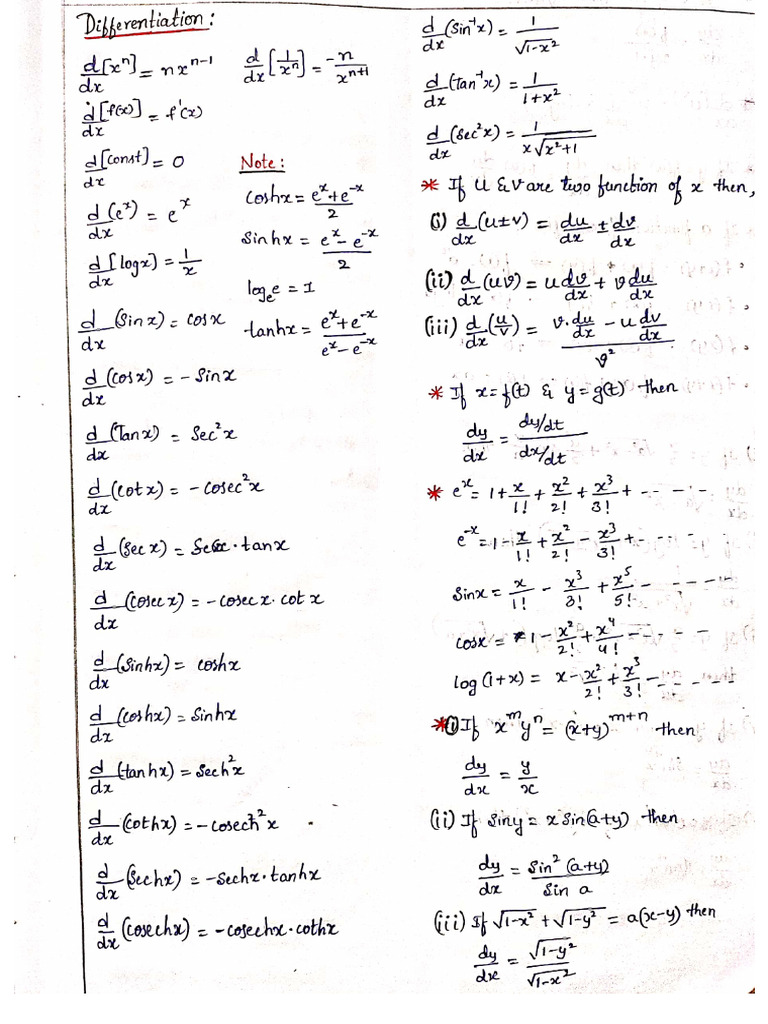 Differentiation:
d/dx [xⁿ] = nxⁿ⁻¹
d/dx [1/xⁿ] = -n/xⁿ⁺¹
d/dx [f(x)] = f'(x)
d/dx [const] = 0
d/dx (eˣ) = eˣ
d/dx [logx] = 1/x
d/dx (Sinx) = cosx
d/dx (cosx) = -Sinx
d/dx (Tanx) = Sec²x
d/dx (cotx) = -cosec²x
d/dx (secx) = Secx·tanx
d/dx (cosecx) = -cosecx·cotx
d/dx (Sinhx) = coshx
d/dx (coshx) = Sinhx
d/dx (tanhx) = Sech²x
d/dx (cothx) = -cosech²x
d/dx (Sechx) = -Sechx·tanhx
d/dx (cosechx) = -cosechx·cothx
Note:
Coshx = (eˣ+e⁻ˣ)/2
Sinhx = (eˣ-e⁻ˣ)/2
logₑe = 1
tanhx = (eˣ+e⁻ˣ)/(eˣ-e⁻ˣ)
d/dx (Sin⁻¹x) = 1/√(1-x²)
d/dx (Tan⁻¹x) = 1/(1+x²)
d/dx (Sec²x) = 1/(x√(x²+1))
* If U & v are two function of x then,
(i) d/dx (u±v) = du/dx ± dv/dx
(ii) d/dx (uv) = u dv/dx + v du/dx
(iii) d/dx (u/v) = (v·du/dx - u dv/dx)/v²
* If x=f(t) & y=g(t) then
dy/dx = (dy/dt)/(dx/dt)
* eˣ = 1 + x/1! + x²/2! + x³/3! + -----
e⁻ˣ = 1 - x/1! + x²/2! - x³/3! + -----
Sinx = x/1! - x³/3! + x⁵/5! - -----
cosx = 1 - x²/2! + x⁴/4! - -----
log(1+x) = x - x²/2! + x³/3! - -----
* (i) If xᵐyⁿ = (x+y)ᵐ⁺ⁿ then
dy/dx = y/x
(ii) If Siny = x Sin(a+y) then
dy/dx = Sin²(a+y)/Sin a
(iii) If √(1-x²) + √(1-y²) = a(x-y) then
dy/dx = √(1-y²)/√(1-x²)